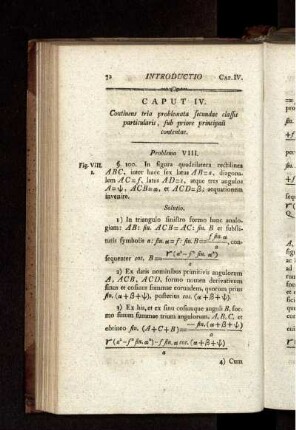 72 INTRODUCTIO CAP. IV.
CAPUT IV.
Continens tria problemata secundae classis
particularis, sub priore principali
contentae.
Problema VIII.
Fig. VIII. §. 100. In figura quadrilatera rectilinea
1. ABC, inter haec sex latus AB=n, diagona-
lem AC=f, latus AD=s, atque tres angulos
A=ψ, ACB=α, et ACD=β, aequationem
invenire.
Solutio.
1) In triangulo sinistro formo hanc analo-
giam: AB: sin. ACB=AC: sin. B et substi-
tutis symbolis n: sin. α=f: sin. B= f sin. α / n, con-
sequenter cos. B= √(n²-f² sin. α²) / n
2) Ex datis nominibus primitivis angulorum
A, ACB, ACD, formo nomen derivativum
sinus et cosinus summae eorundem, quorum prius
sin. (α+β+ψ), posterius cos. (α+β+ψ).
3) Ex his, et ex sinu cosinuque anguli B, for-
mo sinum summae trium angulorum A, B, C, et
obtineo sin. (A+C+B)= — sin. (α+β+ψ)
√(n²-f² sin. α²)-f sin. α cos. (α+β+ψ)
n
4) Cum